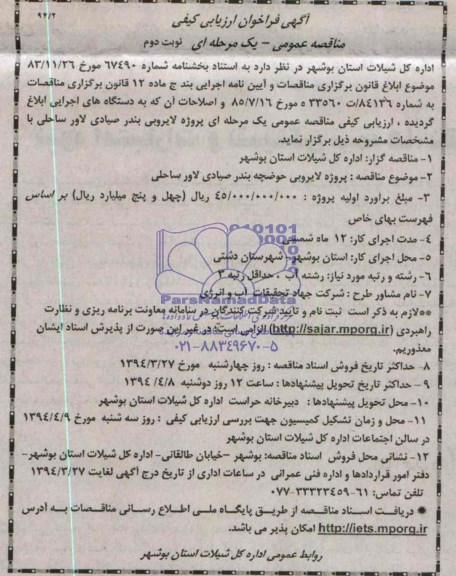 ۹۴/۲
آگهی فراخوان ارزیابی کیفی
مناقصه عمومی - یک مرحله ای نوبت دوم
اداره کل شیلات استان بوشهر در نظر دارد به استناد بخشنامه شماره ۶۷۴۹۰ مورخ ۸۳/۱۱/۲۶
موضوع ابلاغ قانون برگزاری مناقصات و آیین نامه اجرایی بند ج ماده ۱۲ قانون برگزاری مناقصات
به شماره ۸۴۱۳۶/ت ۳۳۵۶۰ ه مورخ ۸۵/۷/۱۶ و اصلاحات آن که به دستگاه های اجرایی ابلاغ
گردیده ، ارزیابی کیفی مناقصه عمومی یک مرحله ای پروژه لایروبی بندر صیادی لاور ساحلی با
مشخصات مشروحه ذیل برگزار نماید.
۱- مناقصه گزار: اداره کل شیلات استان بوشهر
۲- موضوع مناقصه : پروژه لایروبی حوضچه بندر صیادی لاور ساحلی
۳- مبلغ براورد اولیه پروژه : ۴۵/۰۰۰/۰۰۰/۰۰۰ ریال (چهل و پنج میلیارد ریال) بر اساس
فهرست بهای خاص
۴- مدت اجرای کار: ۱۲ ماه شمسی
۵- محل اجرای کار: استان بوشهر- شهرستان دشتی
۶- رشته و رتبه مورد نیاز: رشته آب ، حداقل رتبه ۳
۷- نام مشاور طرح : شرکت جهاد تحقیقات آب و انرژی
**لازم به ذکر است ثبت نام و تایید شرکت کنندگان در سامانه معاونت برنامه ریزی و نظارت
راهبردی (http://sajar.mporg.ir) الزامی است در غیر این صورت از پذیرش اسناد ایشان
معذوریم.
۸- حداکثر تاریخ فروش اسناد مناقصه : روز چهارشنبه مورخ ۱۳۹۴/۳/۲۷
۹- حداکثر تاریخ تحویل پیشنهادها : ساعت ۱۲ روز دوشنبه ۱۳۹۴/۴/۸
۱۰- محل تحویل پیشنهادها : دبیرخانه حراست اداره کل شیلات استان بوشهر
۱۱- محل و زمان تشکیل کمیسیون جهت بررسی ارزیابی کیفی : روز سه شنبه مورخ ۱۳۹۴/۴/۹
در سالن اجتماعات اداره کل شیلات استان بوشهر
۱۲- نشانی محل فروش اسناد مناقصه: بوشهر -خیابان طالقانی- اداره کل شیلات استان بوشهر-
دفتر امور قراردادها و اداره فنی عمرانی در ساعات اداری از تاریخ درج آگهی لغایت ۱۳۹۴/۳/۲۷
تلفن تماس: ۶۱-۳۳۳۲۳۴۵۹-۰۷۷
● دریافت اسناد مناقصه از طریق پایگاه ملی اطلاع رسانی مناقصات به آدرس
http://iets.mporg.ir امکان پذیر می باشد.
روابط عمومی اداره کل شیلات استان بوشهر
ParsNamadData
۰۲۱-۸۸۳۴۹۶۷۰-۵